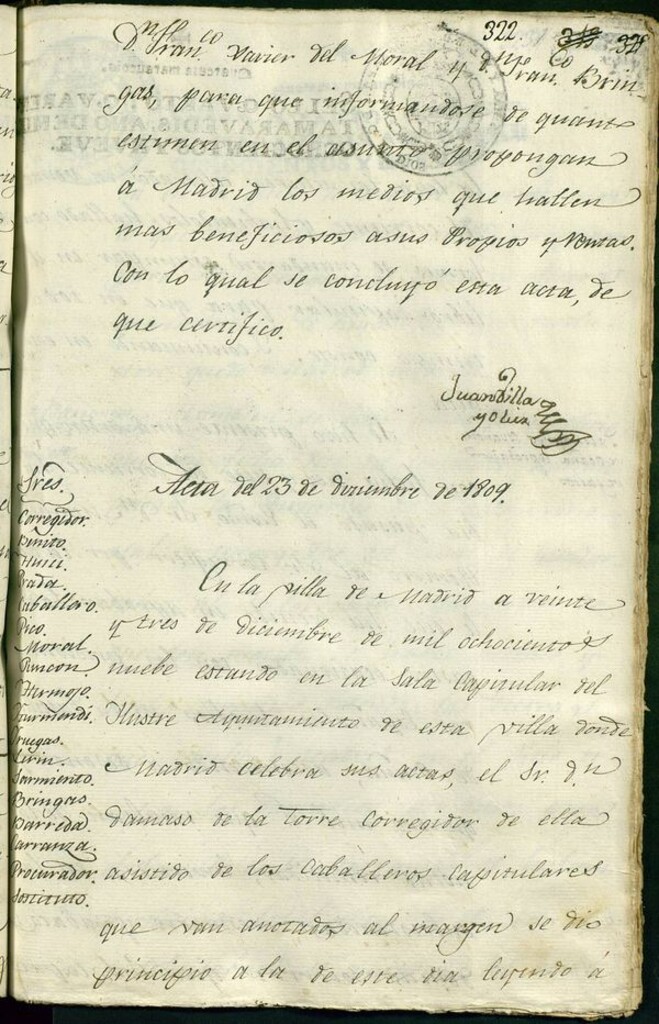 322.
321
Dn. Franco Xavier del Moral y Dn. Franco Brin-
gas, para que informandose de quanto
estimen en el asunto propongan
á Madrid los medios que hallen
mas beneficiosos asus Propios y Rentas.
Con lo qual se concluyo esta acta, de
que certifico.
Juan Villa
y Olier
Acta del 23 de diziembre de 1809.
Sres.
Corregidor.
Huici.
Prada.
Caballero.
Pico.
Moral.
Rincon
Hermoso.
Gurmendi.
Lerin.
Sarmiento.
Bringas.
Barreda.
Carranza.
Procurador.
Sostituto.
En la Villa de Madrid a veinte
y tres de diciembre de mil ochocientos
nuebe estando en la Sala Capitular del
Ilustre Ayuntamiento de esta Villa donde
Madrid celebra sus actas, el Sr. Dn
Damaso de la Torre Corregidor de ella
asistido de los Caballeros Capitulares
que van anotados al margen se dio
principio a la de este dia leyendo á